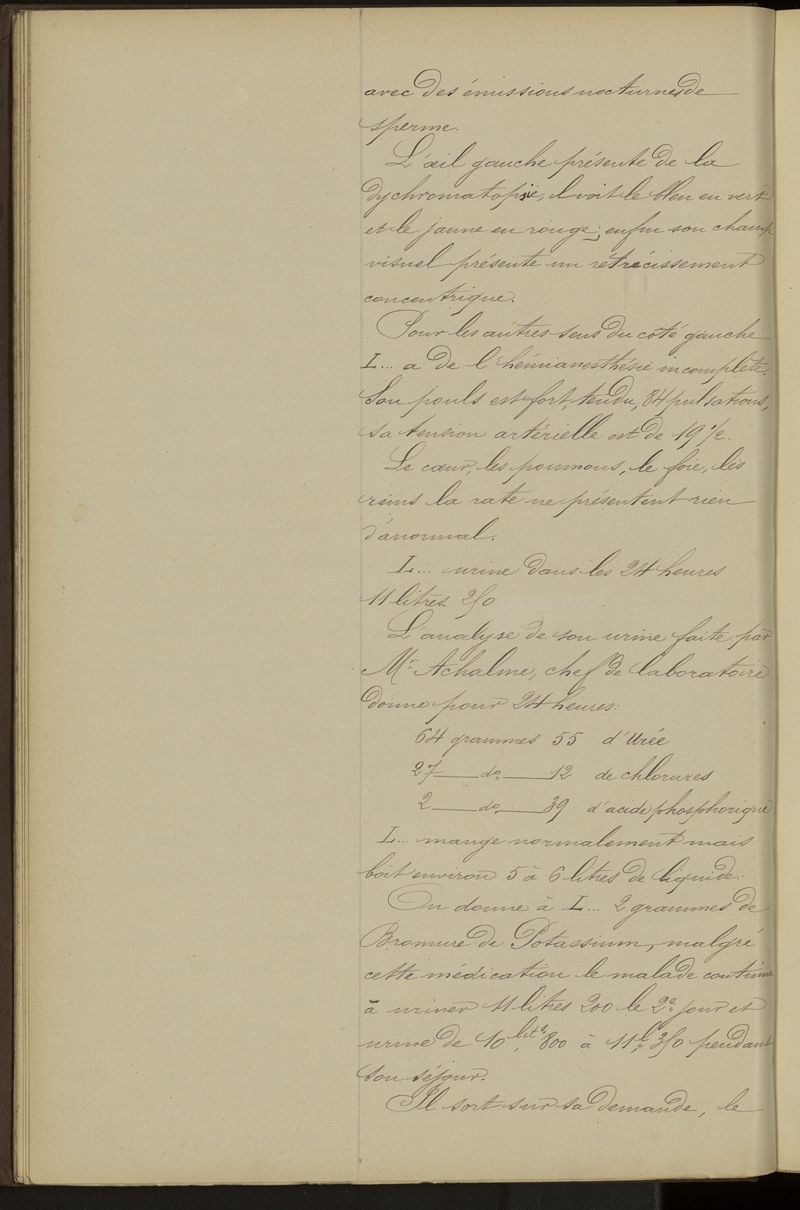 avec des émissions nocturnes de
sperme.
L'œil gauche présente de la
dychromatopsie, il voit le bleu en vert
et le jaune en rouge; enfin son champ
visuel présente un rétrécissement
concentrique.
Pour les autres sens du coté gauche
L... a de l'hémianesthésie incomplète.
Son pouls est fort, tendu, 84 pulsations,
sa tension artérielle est de 19 1/2.
Le cœur, les poumons, le foie, les
reins la rate ne présentent rien
d'anormal.
L... urine dans les 24 heures
11 litres. 250
L'analyse de son urine faite par
Mr Achalme, chef de laboratoire
donne pour 24 heures:
64 grammes 55 d'Urée
27 — do — 12 de chlorures
2 — do — 39 d'acide phosphorique
L... mange normalement mais
boit environ 5 à 6 litres de liquide.
On donne à L... 2 grammes de
Bromure de Potassium, malgré
cette médication le malade continue
à uriner 11 litres 200 le 2e jour et
urine de 10 lit. 800 à 11 l. 350 pendant
son séjour.
Il sort sur sa demande, le